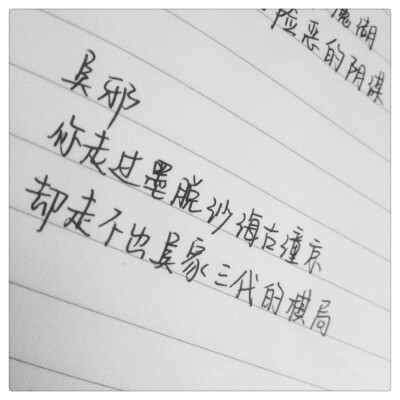 瑰湖
险恶的阴谋
吴邪
你走过墨脱沙海古潼京
却走不出吴家三代的棋局